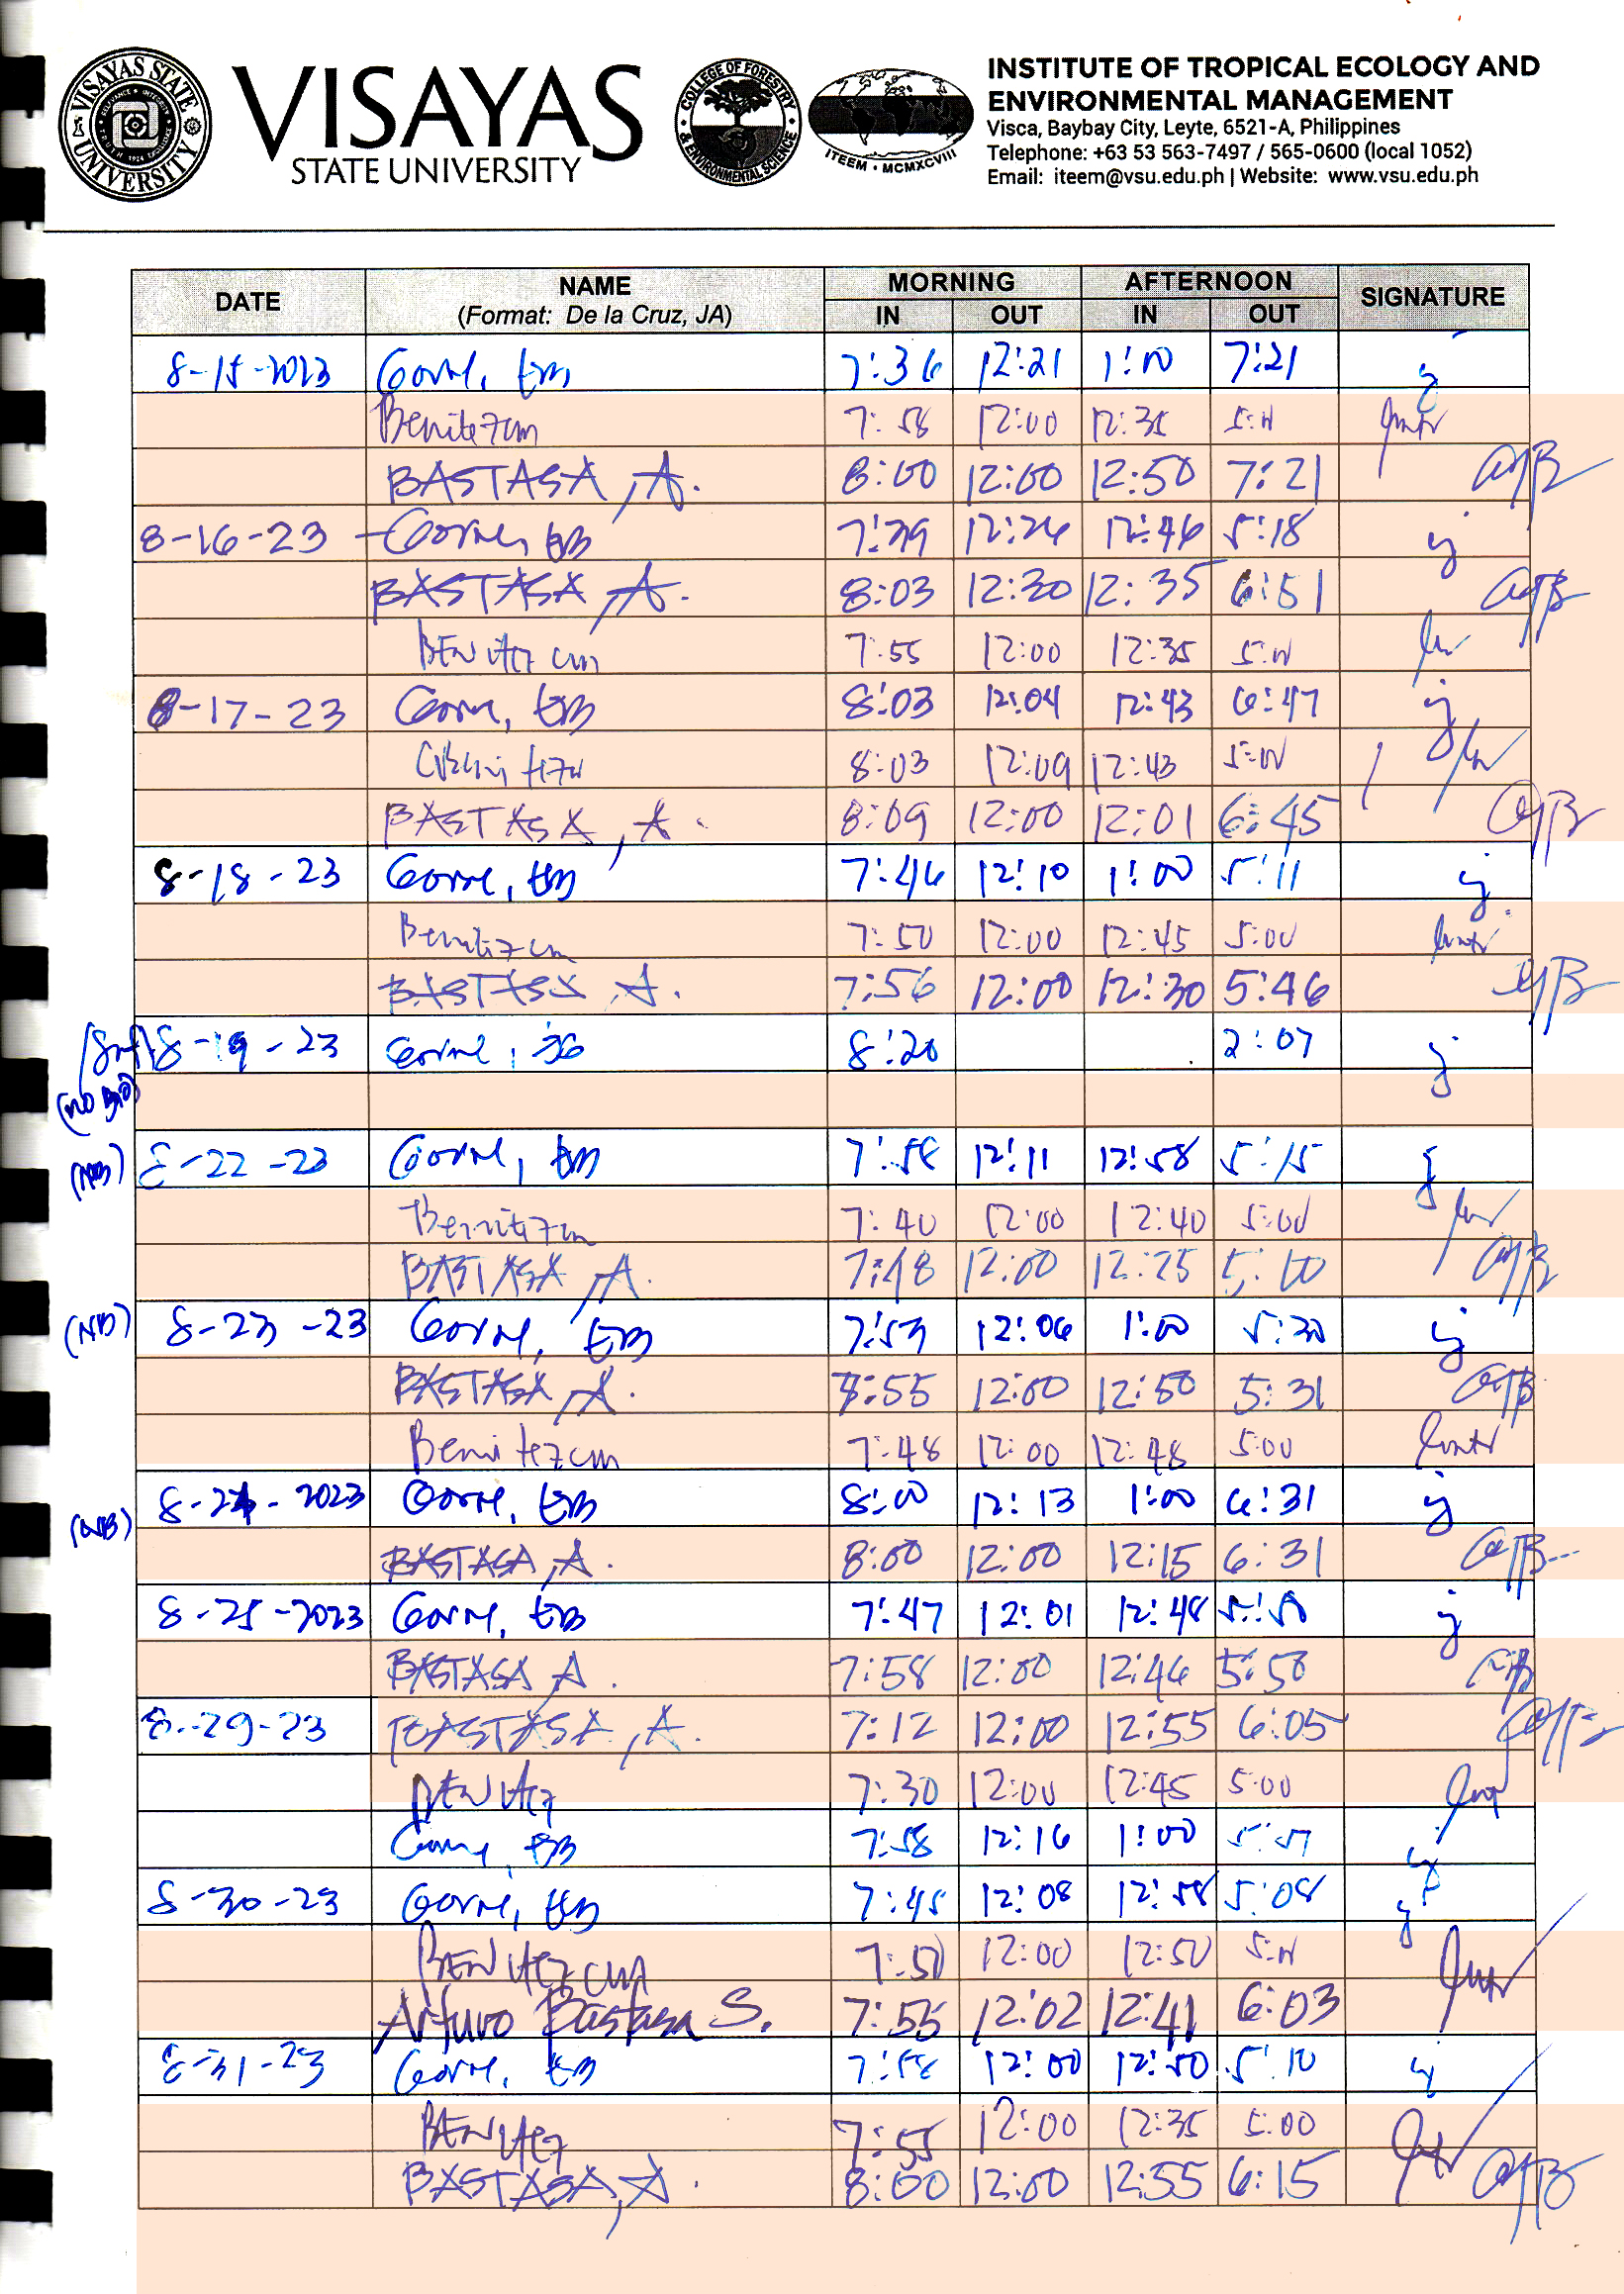 VISAYAS STATE UNIVERSITY
VISAYAS
STATE UNIVERSITY
COLLEGE OF FORESTRY & ENVIRONMENTAL SCIENCE
ITEEM • MCMXCVIII
INSTITUTE OF TROPICAL ECOLOGY AND
ENVIRONMENTAL MANAGEMENT
Visca, Baybay City, Leyte, 6521-A, Philippines
Telephone: +63 53 563-7497 / 565-0600 (local 1052)
Email: iteem@vsu.edu.ph | Website: www.vsu.edu.ph
DATE NAME MORNING AFTERNOON SIGNATURE
(Format: De la Cruz, JA) IN OUT IN OUT
8-15-2023 Gorne, EB 7:36 12:21 1:00 7:21
Benitez cm 7:58 12:00 12:35 5:00
BASTASA, A. 8:00 12:00 12:50 7:21
8-16-23 Gorne, EB 7:39 12:26 12:46 5:18
BASTASA, A. 8:03 12:30 12:35 6:51
BENitez cm 7:55 12:00 12:35 5:00
8-17-23 Gorne, EB 8:03 12:04 12:43 6:47
8:03 12:09 12:43 5:00
BASTASA, A. 8:09 12:00 12:01 6:45
8-18-23 Gorne, EB 7:46 12:10 1:00 5:11
Benitez cm 7:50 12:00 12:45 5:00
BASTASA, A. 7:56 12:00 12:30 5:46
8-19-23 Gorne, 8:20 2:07
(NO BIO)
(NB) 8-22-23 Gorne, EB 7:58 12:11 12:58 5:15
Benitez cm 7:40 12:00 12:40 5:00
BASTASA, A. 7:48 12:00 12:25 5:10
(NB) 8-23-23 Gorne, EB 7:53 12:06 1:00 5:30
BASTASA, A. 7:55 12:00 12:50 5:31
Benitez cm 7:48 12:00 12:48 5:00
(NB) 8-24-2023 Gorne, EB 8:00 12:13 1:00 6:31
BASTASA, A. 8:00 12:00 12:15 6:31
8-25-2023 Gorne, EB 7:47 12:01 12:48 5:50
BASTASA, A. 7:58 12:00 12:46 5:50
8-29-23 BASTASA, A. 7:12 12:00 12:55 6:05
BENitez 7:30 12:00 12:45 5:00
Gorne, EB 7:58 12:16 1:00 5:57
8-30-23 Gorne, EB 7:45 12:08 12:58 5:08
BENitez cm 7:50 12:00 12:50 5:00
Arturo Bastasa S. 7:55 12:02 12:41 6:03
8-31-23 Gorne, EB 7:58 12:00 12:50 5:10
BENitez 7:55 12:00 12:35 5:00
BASTASA, A. 8:00 12:00 12:55 6:15